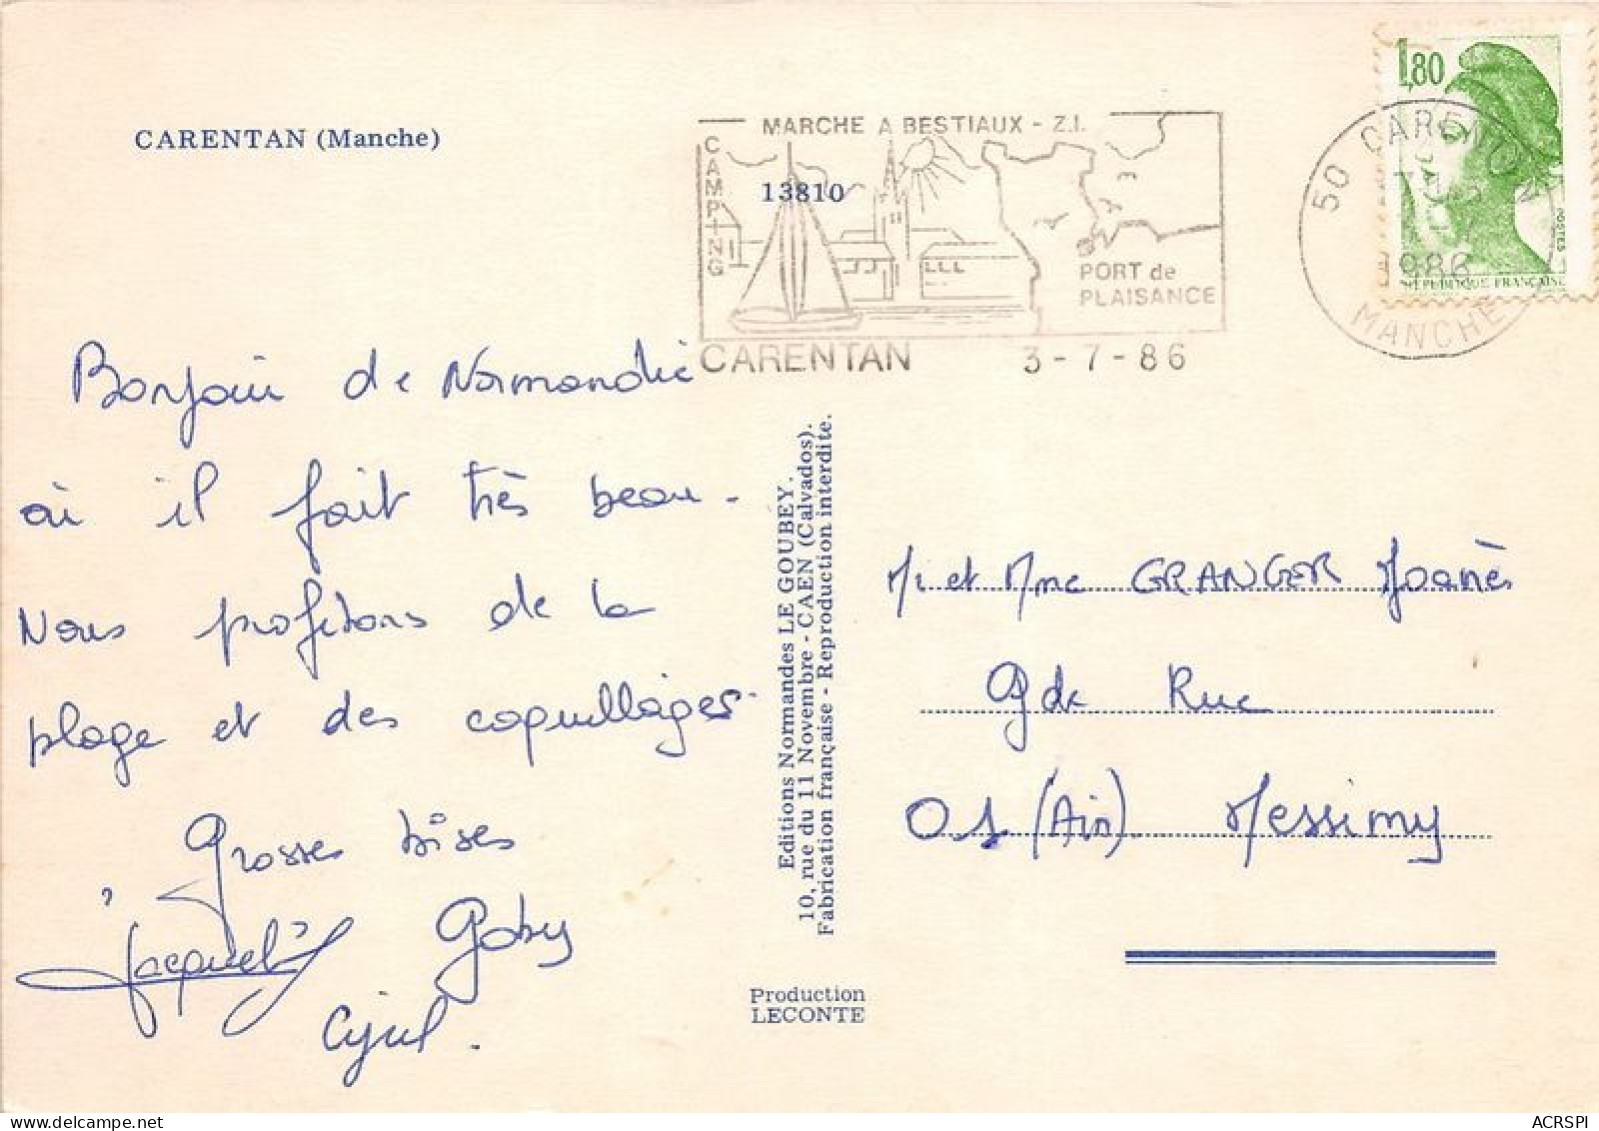 1,80
CARENTAN (Manche)
MARCHE A BESTIAUX - Z.I.
CAMPING
13810
PORT de
PLAISANCE
CARENTAN 3-7-86
50 CARENTON
1986
MANCHE
POSTES
REPUBLIQUE FRANÇAISE
Bonjour de Normandie
où il fait très beau.
Nous profitons de la
plage et des coquillages.
Grosses bises
Jacqueline Gaby
Cyril.
Editions Normandes LE GOUBEY.
10, rue du 11 Novembre - CAEN (Calvados).
Fabrication française - Reproduction interdite.
Production
LECONTE
M. et Mme GRANGER Joanès
Gde Rue
01 (Ain) Messimy
ACRSPI